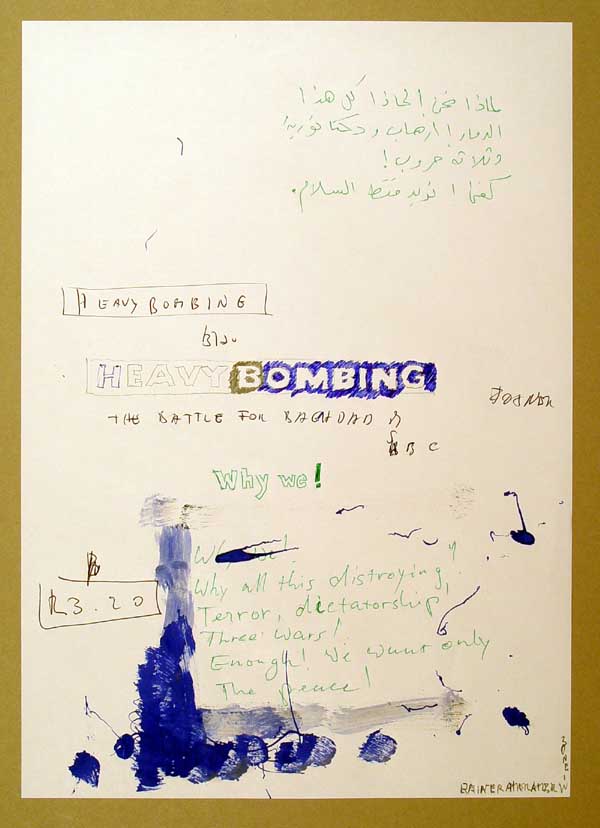 لماذا نحن! لماذا كل هذا
الدمار! ارهاب و دكتاتورية!
وثلاثة حروب!
كفى! نريد فقط السلام.
HEAVY BOMBING
HEAVY BOMBING
THE BATTLE FOR BAGHDAD
BBC
Why we!
Why we!
Why all this distroying!
Terror, dictatorship!
Three Wars!
Enough! We want only
The peace!